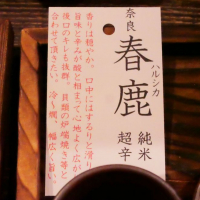 奈良
春鹿
ハルシカ
純米
超辛
香りは穏やか。口中にはするりと滑り
旨味と辛みが酸と相まって心地よく広が
後口のキレも抜群。貝類の炉端焼き等と
合わせて頂きたい。冷〜燗、幅広く旨い。